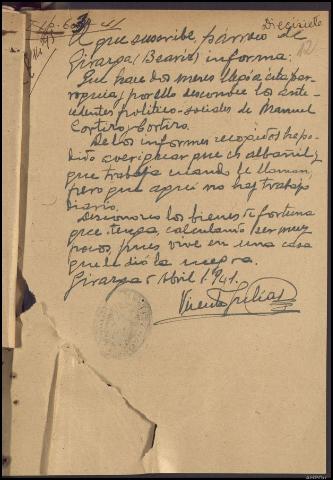 Diecisiete
12
El que suscribe, párroco de
Girazga (Beariz) informa:
Que hace dos meses llegó a esta par-
roquia; por ello desconoce los ante-
cedentes político-sociales de Manuel
Cortizo Cortizo.
De los informes recogidos he po-
dido averiguar que es albañil,
que trabaja cuando le llaman,
pero que aquí no hay trabajo
diario.
Desconozco los bienes de fortuna
que tenga, calculando ser muy
pocos, pues vive en una casa
que le dió la suegra.
Girazga 5 Abril 1.941.